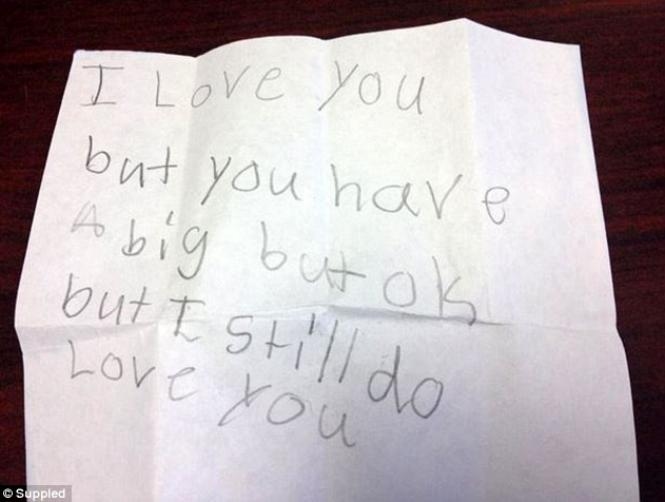 I Love you
but you have
A big but ok
but I still do
Love You
© Suppled